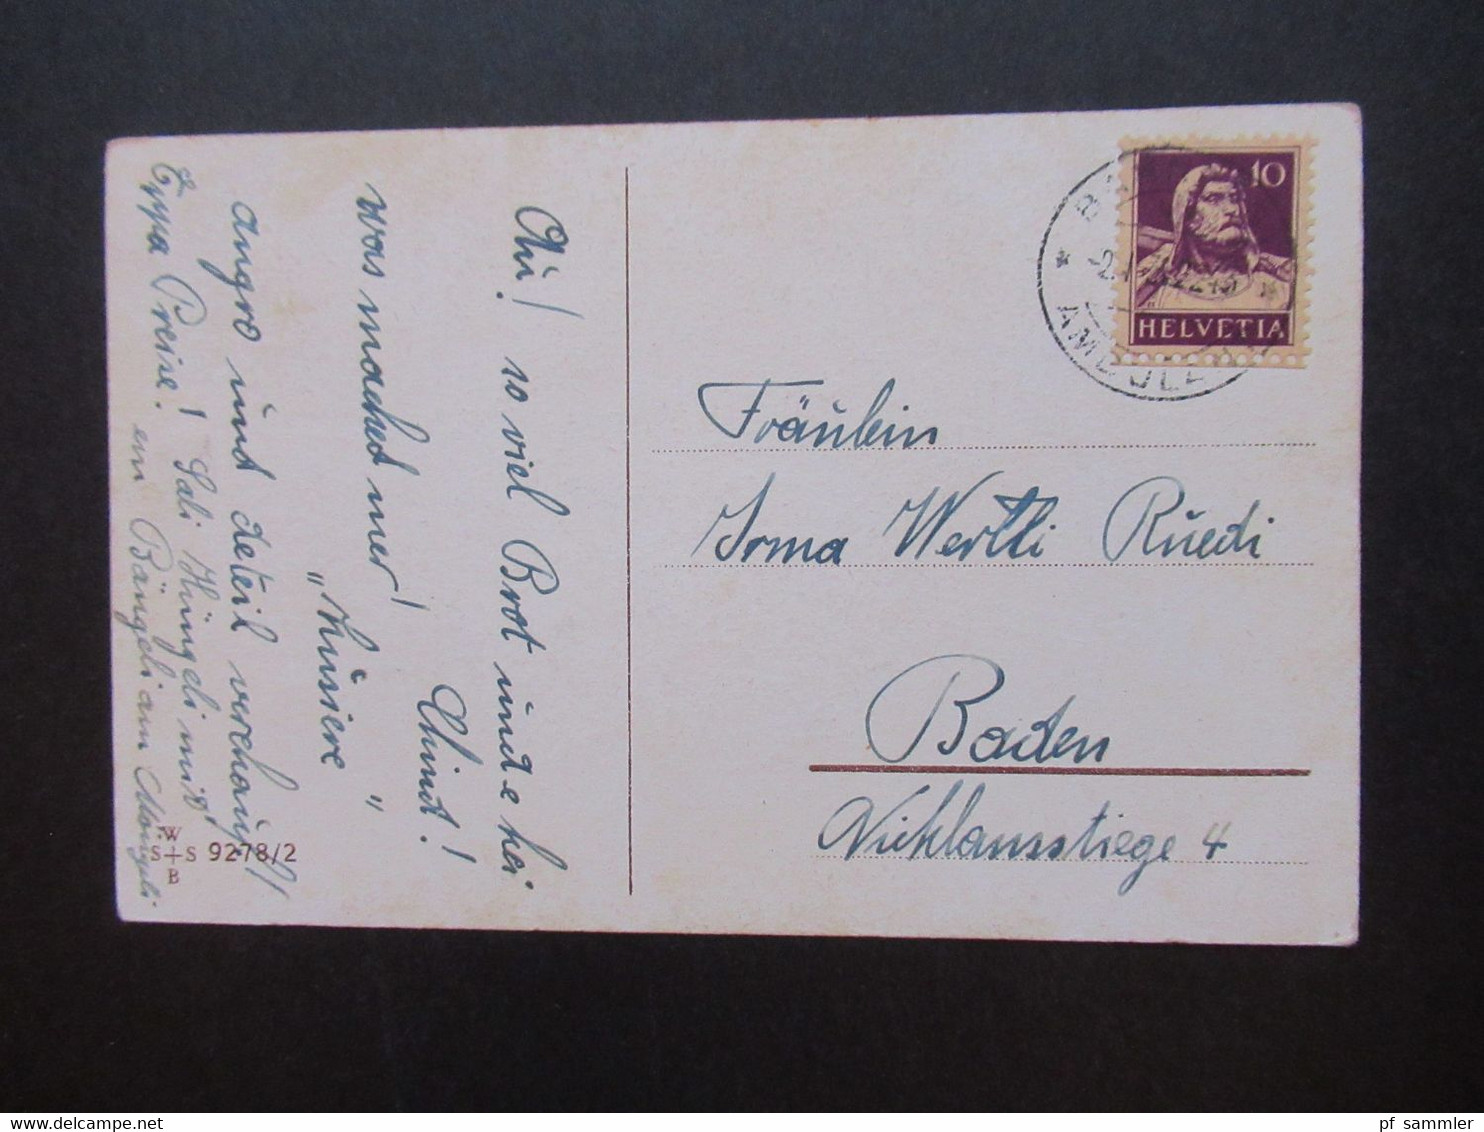 Au! so viel Brot und e kei
Chind!
was mached mer!
"Züsiere
"
angro und deteil verchauf//
Eppa Preise! Sali Hüngeli mis!
em Bängeli am
W
S+S 9278/2
B
10
HELVETIA
Fräulein
Irma Wertli Ruedi
Baden
Nicklausstiege 4
www.delcampe.net
pf_sammler